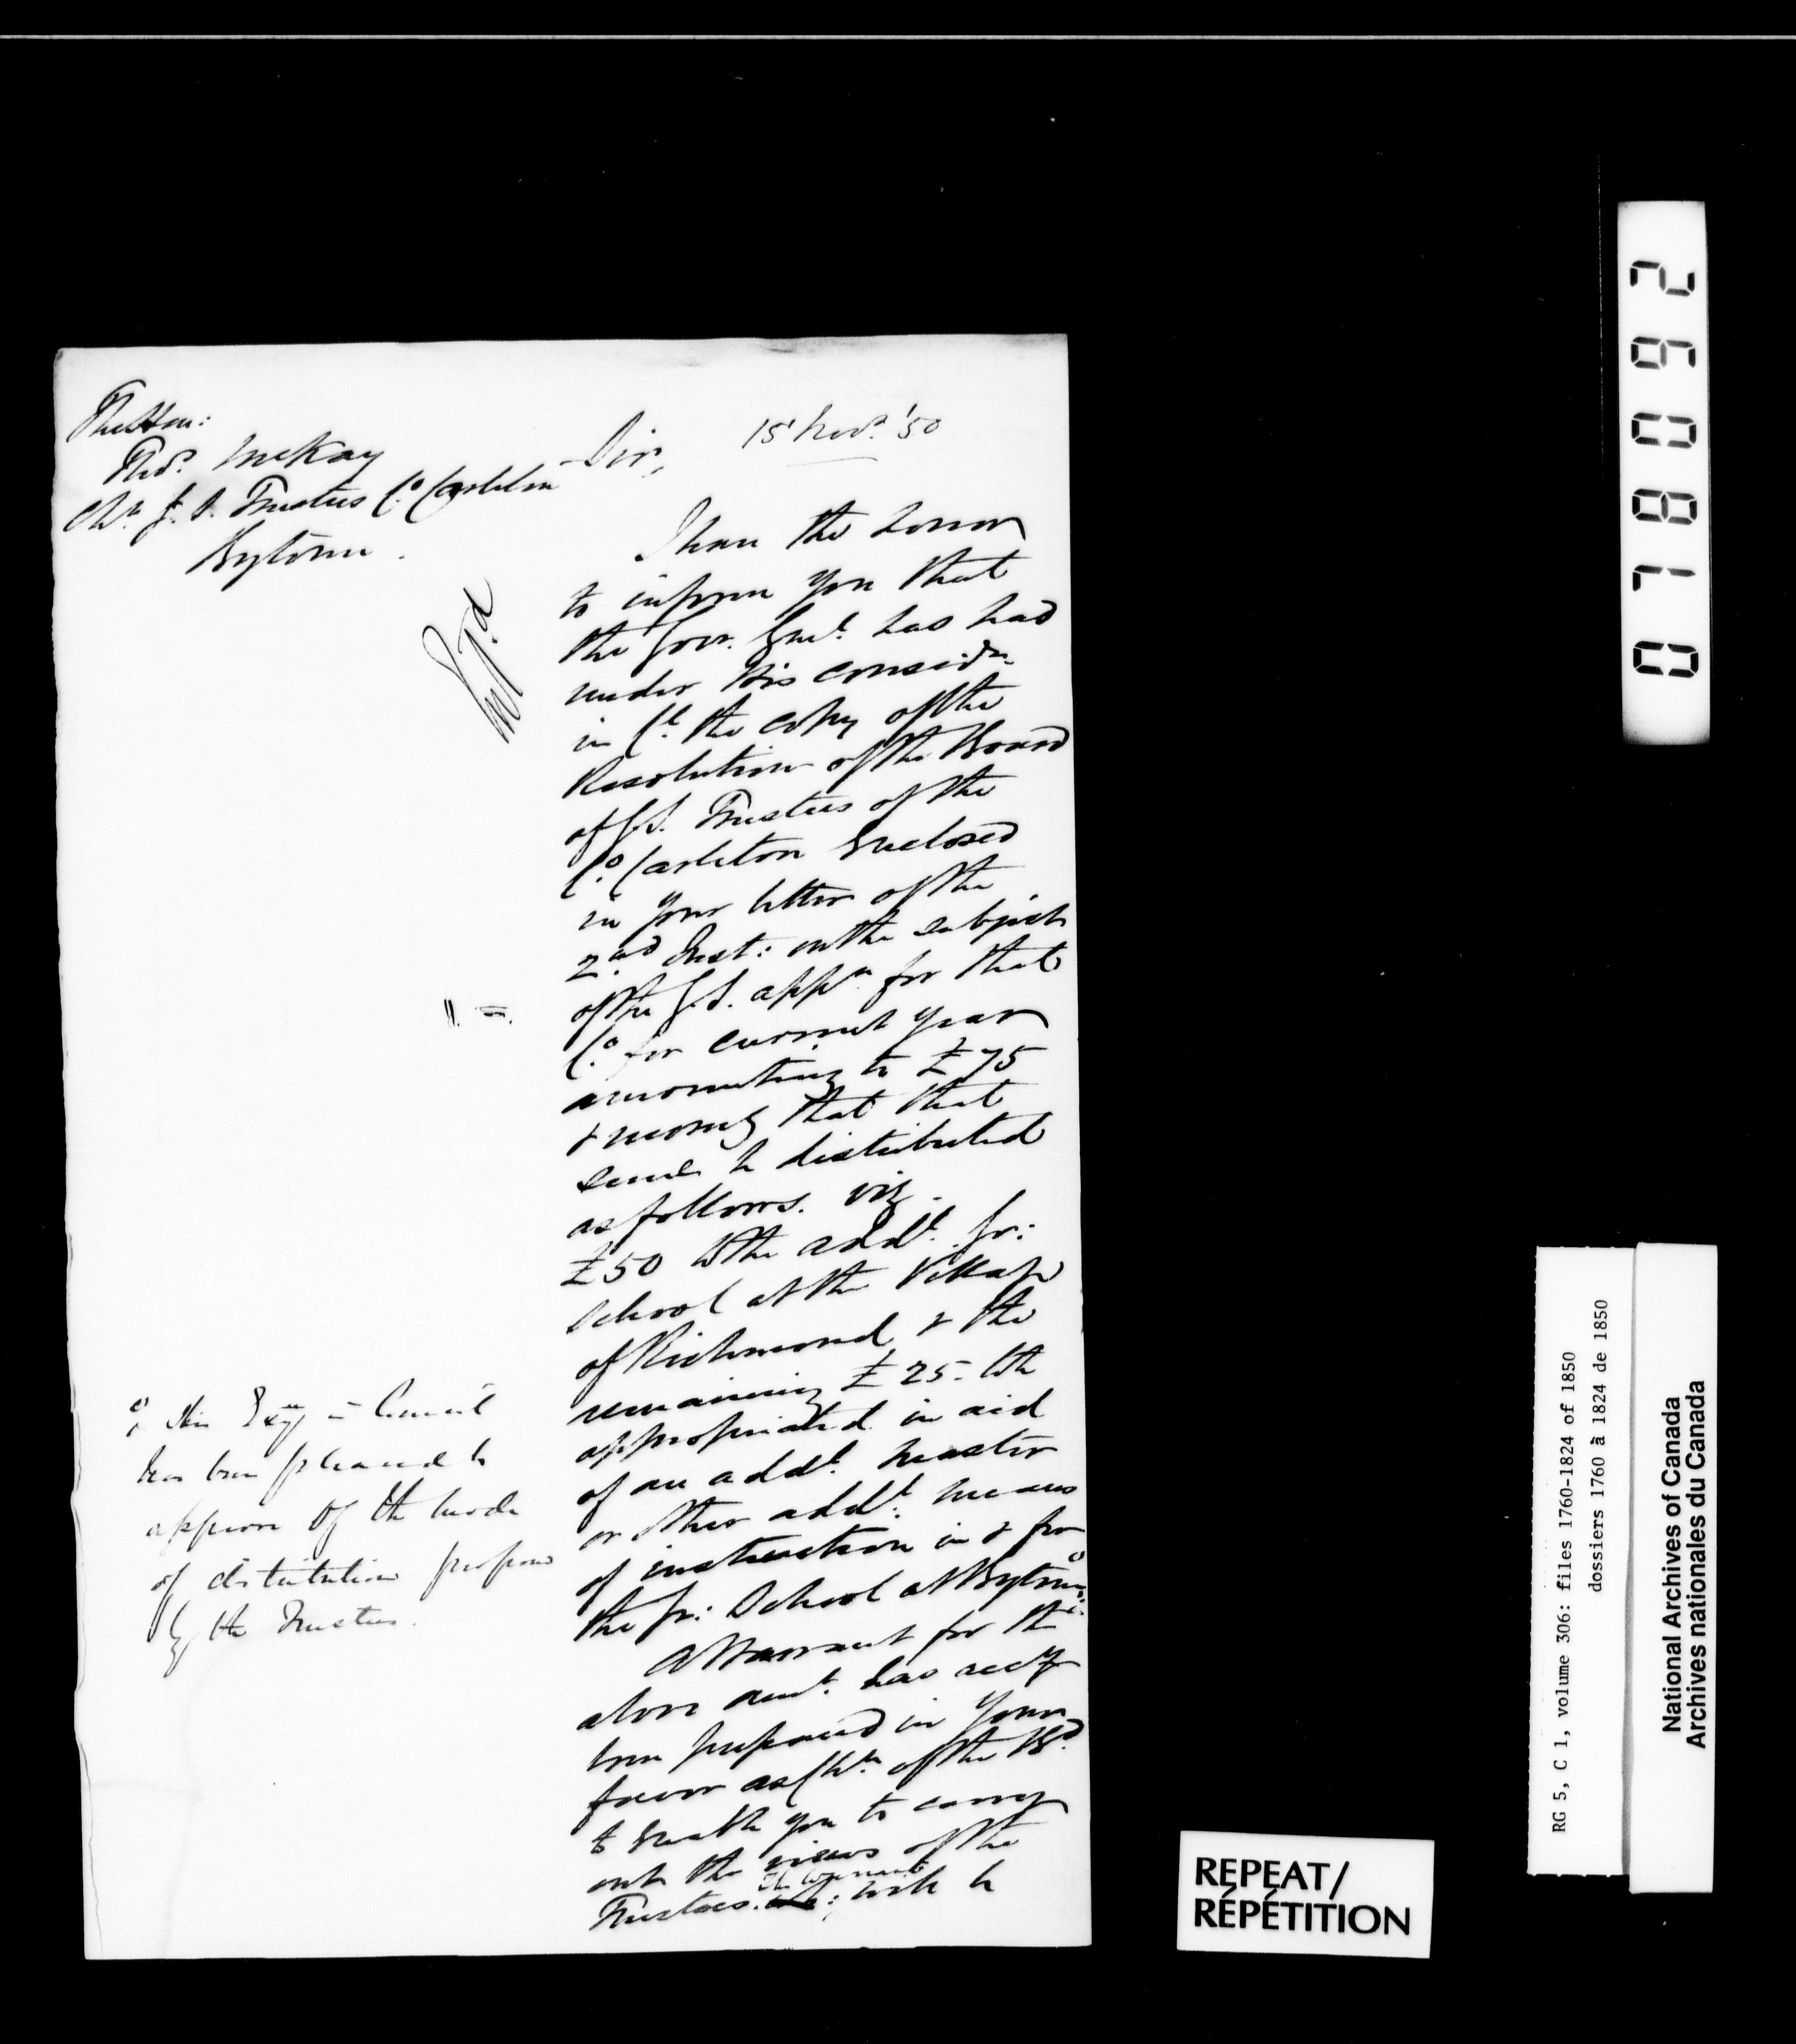 The Hon:
Thos. McKay
Chn. G. S. Trustees Co. Carleton
Bytown.
15 Novr. '50
Sir,
I have the honor
to inform you that
the Govr. Genl. has had
under His considn.
in Cl. the copy of the
Resolution of the Board
of G.S. Trustees of the
Co. Carleton Enclosed
in your letter of the
2nd Inst: on the subject
of the G.S. appn. for that
Co. for current year
amounting to £75
& recomg that that
sum be distributed
as follows. viz
£50 to the addl. Gr:
School at the Village
of Richmond & the
remaining £25 - to be
appropriated in aid
of an addl. master
or other addl. means
of instruction in & for
the Gr: School at Bytown;
& His Exy in Council
has been pleased to
approve of the mode
of distribution proposed
by the Trustees.
A Warrant for the
above amt. has
been prepared in Your
favor as Chn. of the Bd.
to Enable you to carry
out the views of the
Trustees. The Warrant will be
REPEAT/
RÉPÉTITION
0780962
RG 5, C 1, volume 306: files 1760-1824 of 1850
dossiers 1760 à 1824 de 1850
National Archives of Canada
Archives nationales du Canada